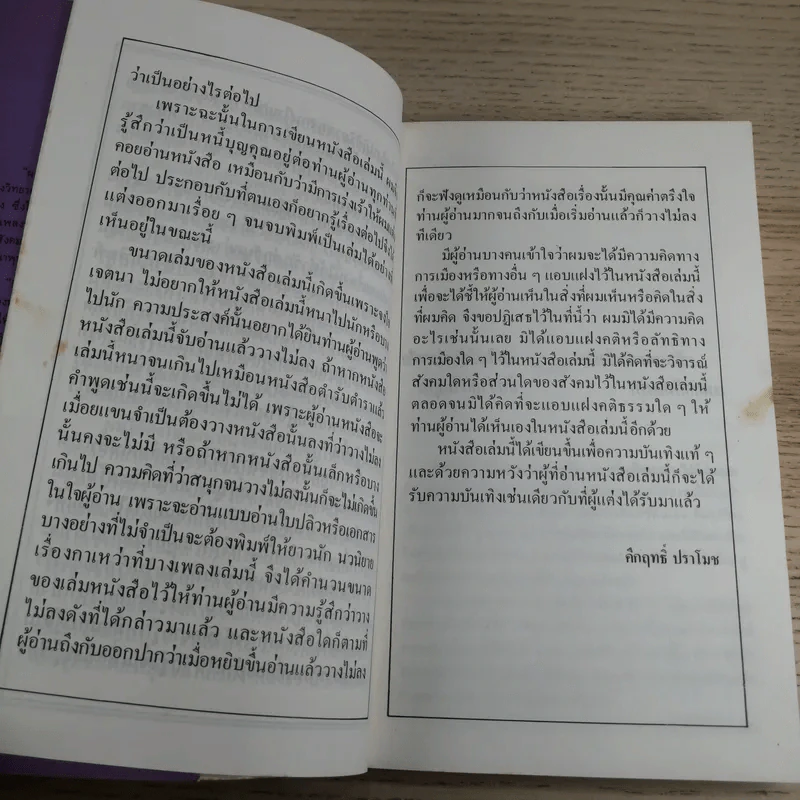 ว่าเป็นอย่างไรต่อไป
เพราะฉะนั้นในการเขียนหนังสือเล่มนี้
รู้สึกว่าเป็นหนี้บุญคุณอยู่ต่อท่านผู้อ่านทุกท่าน
คอยอ่านหนังสือ เหมือนกับว่ามีการเร่งเร้าให้ผม
ต่อไป ประกอบกับที่ตนเองก็อยากรู้เรื่องต่อไปจึงได้
แต่งออกมาเรื่อย ๆ จนจบพิมพ์เป็นเล่มได้อย่างที่
เห็นอยู่ในขณะนี้
ขนาดเล่มของหนังสือเล่มนี้เกิดขึ้นเพราะจงใจ
เจตนา ไม่อยากให้หนังสือเล่มนี้หนาไปนักหรือบาง
ไปนัก ความประสงค์นั้นอยากได้ยินท่านผู้อ่านพูดว่า
หนังสือเล่มนี้จับอ่านแล้ววางไม่ลง ถ้าหากหนังสือ
เล่มนี้หนาจนเกินไปเหมือนหนังสือตำรับตำราแล้ว
คำพูดเช่นนี้จะเกิดขึ้นไม่ได้ เพราะผู้อ่านหนังสือจะ
เมื่อยแขนจำเป็นต้องวางหนังสือนั้นลงที่ว่าวางไม่ลง
นั้นคงจะไม่มี หรือถ้าหากหนังสือนั้นเล็กหรือบาง
เกินไป ความคิดที่ว่าสนุกจนวางไม่ลงนั้นก็จะไม่เกิดขึ้น
ในใจผู้อ่าน เพราะจะอ่านแบบอ่านใบปลิวหรือเอกสาร
บางอย่างที่ไม่จำเป็นจะต้องพิมพ์ให้ยาวนัก นวนิยาย
เรื่องกาเหว่าที่บางเพลงเล่มนี้ จึงได้คำนวนขนาด
ของเล่มหนังสือไว้ให้ท่านผู้อ่านมีความรู้สึกว่าวาง
ไม่ลงดังที่ได้กล่าวมาแล้ว และหนังสือใดก็ตามที่
ผู้อ่านถึงกับออกปากว่าเมื่อหยิบขึ้นอ่านแล้ววางไม่ลง
ก็จะฟังดูเหมือนกับว่าหนังสือเรื่องนั้นมีคุณค่าตรึงใจ
ท่านผู้อ่านมากจนถึงกับเมื่อเริ่มอ่านแล้วก็วางไม่ลง
ทีเดียว
มีผู้อ่านบางคนเข้าใจว่าผมจะได้มีความคิดทาง
การเมืองหรือทางอื่น ๆ แอบแฝงไว้ในหนังสือเล่มนี้
เพื่อจะได้ชี้ให้ผู้อ่านเห็นในสิ่งที่ผมเห็นหรือคิดในสิ่ง
ที่ผมคิด จึงขอปฏิเสธไว้ในที่นี้ว่า ผมมิได้มีความคิด
อะไรเช่นนั้นเลย มิได้แอบแฝงคติหรือลัทธิทาง
การเมืองใด ๆ ไว้ในหนังสือเล่มนี้ มิได้คิดที่จะวิจารณ์
สังคมใดหรือส่วนใดของสังคมไว้ในหนังสือเล่มนี้
ตลอดจนมิได้คิดที่จะแอบแฝงคติธรรมใด ๆ ให้
ท่านผู้อ่านได้เห็นเองในหนังสือเล่มนี้อีกด้วย
หนังสือเล่มนี้ได้เขียนขึ้นเพื่อความบันเทิงแท้ ๆ
และด้วยความหวังว่าผู้ที่อ่านหนังสือเล่มนี้ก็จะได้
รับความบันเทิงเช่นเดียวกับที่ผู้แต่งได้รับมาแล้ว
คึกฤทธิ์ ปราโมช